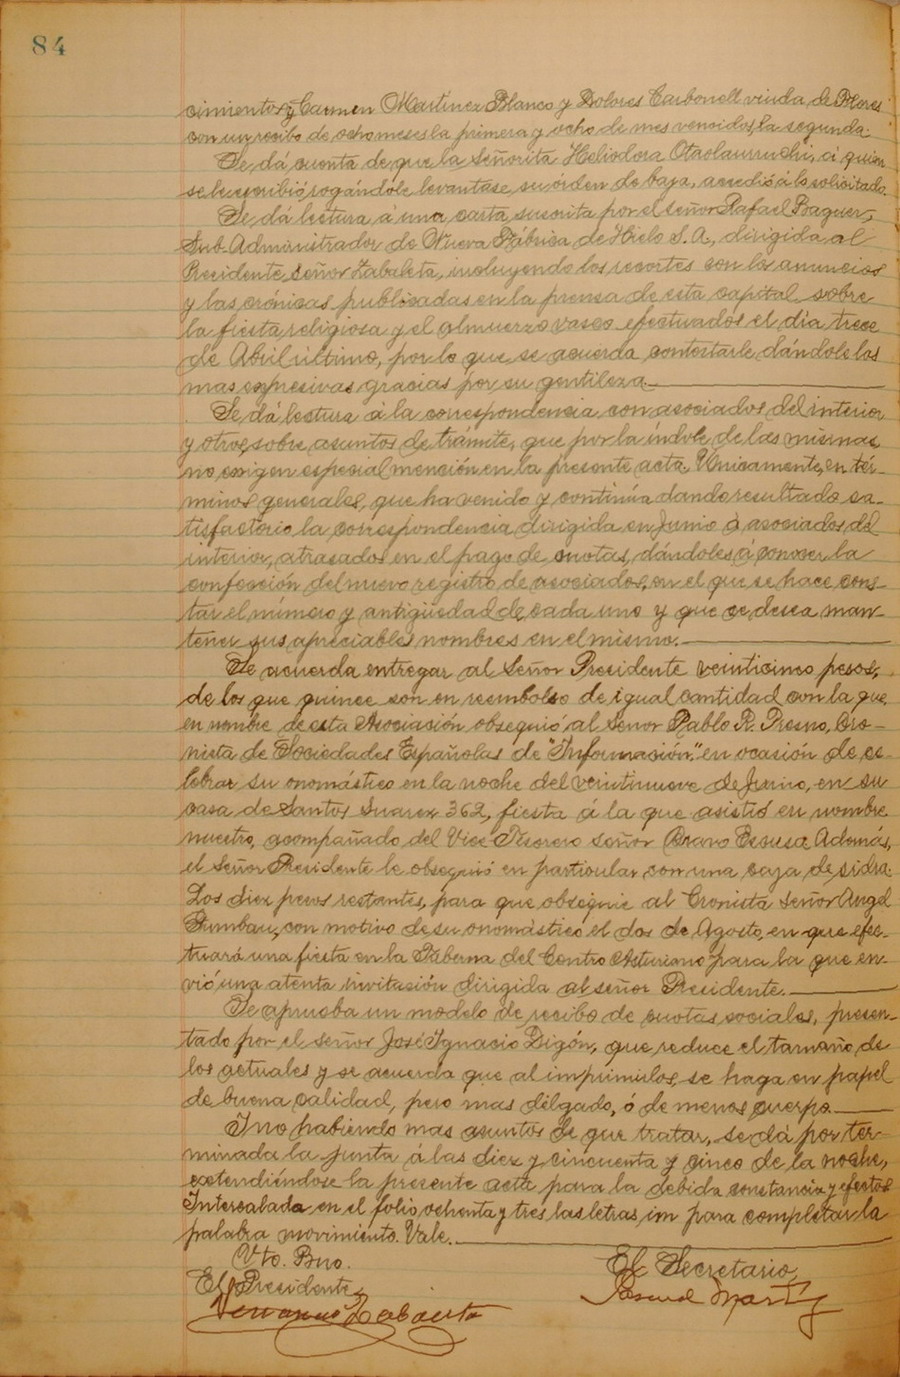 84
cimientos y Carmen Martínez Blanco y Dolores Carbonell viuda de Flores
con un recibo de ocho meses la primera y ocho de mes vencidos la segunda.
Se dá cuenta de que la Señorita Heliodora Otaolaurruchi, á quien
se le escribió rogándole levantase su órden de baja, accedió á lo solicitado.
Se dá lectura á una carta suscrita por el señor Rafael Baguer,
Sub-Administrador de Nueva Fábrica de Hielo S.A., dirigida al
Presidente, señor Zabaleta, incluyendo los recortes con los anuncios
y las crónicas publicadas en la prensa de esta capital sobre
la fiesta religiosa y el almuerzo vasco efectuados el día trece
de Abril último, por lo que se acuerda contestarle dándole las
mas expresivas gracias por su gentileza.
Se dá lectura á la correspondencia con asociados del interior
y otros, sobre asuntos de trámite, que por la índole de las mismas,
no exigen especial mención en la presente acta. Unicamente, en tér-
minos generales, que ha venido y continúa dando resultado sa-
tisfactorio la correspondencia dirigida en Junio á asociados del
interior, atrasados en el pago de cuotas, dándoles á conocer la
confección del nuevo registro de asociados, en el que se hace cons-
tar el número y antigüedad de cada uno y que se desea man-
tener sus apreciables nombres en el mismo.
Se acuerda entregar al Señor Presidente veinticinco pesos,
de los que quince son en reembolso de igual cantidad con la que,
en nombre de esta Asociación obsequió al Señor Pablo R. Presno, Cro-
nista de Sociedades Españolas de "Información", en ocasión de ce-
lebrar su onomástico en la noche del veintinueve de Junio, en su
casa de Santos Suarez 362, fiesta á la que asistió en nombre
nuestro, acompañado del Vice Tesorero señor Bravo Escusa. Además,
el Señor Presidente le obsequió en particular con una caja de sidra.
Los diez pesos restantes, para que obsequie al Cronista señor Angel
Fumbau, con motivo de su onomástico el dos de Agosto, en que efec-
tuará una fiesta en la Taberna del Centro Asturiano para la que en-
vió una atenta invitación dirigida al señor Presidente.
Se aprueba un modelo de recibo de cuotas sociales, presen-
tado por el señor José Ignacio Digón, que reduce el tamaño de
los actuales y se acuerda que al imprimirlos, se haga en papel
de buena calidad, pero mas délgado, ó de menos cuerpo.
Y no habiendo mas asuntos de que tratar, se dá por ter-
minada la junta á las diez y cincuenta y cinco de la noche,
extendiéndose la presente acta para la debida constancia y efectos.
Intercalada en el folio ochenta y tres las letras im para completar la
palabra movimiento. Vale.
Vto. Bno.
El Secretario,
El Presidente,
Pascual Martí
Zabaleta